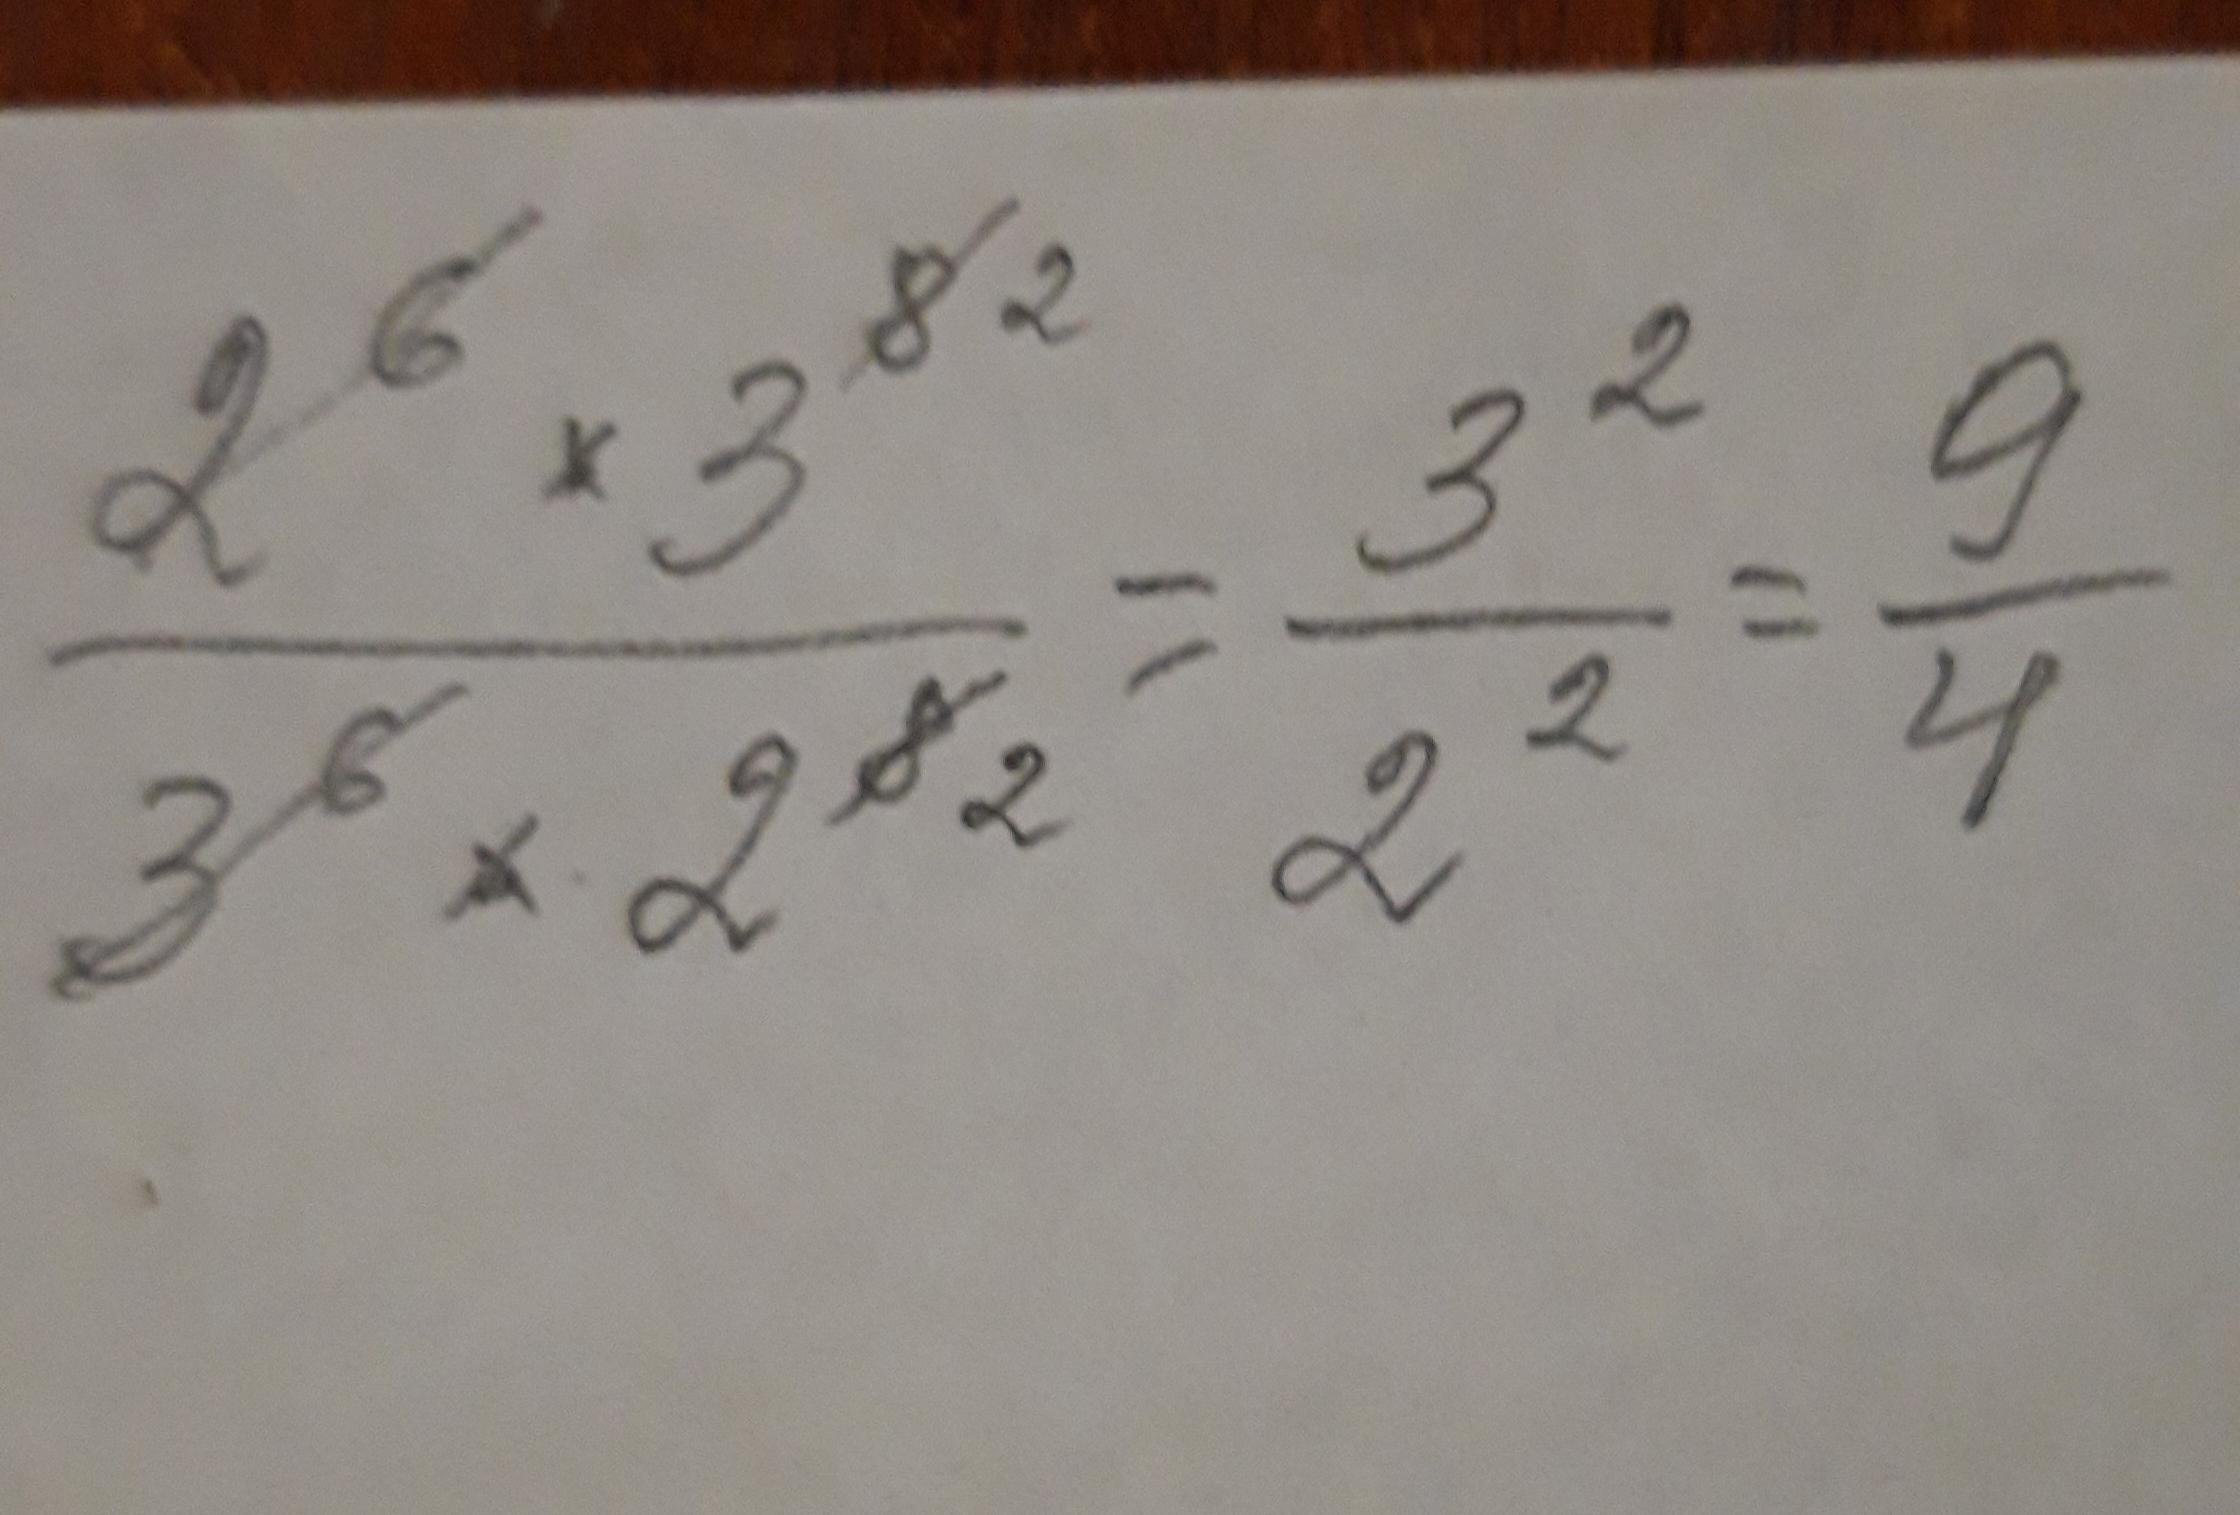 2⁶ × 3⁸ ² / 3⁶ × 2⁸ ² = 3² / 2² = 9 / 4